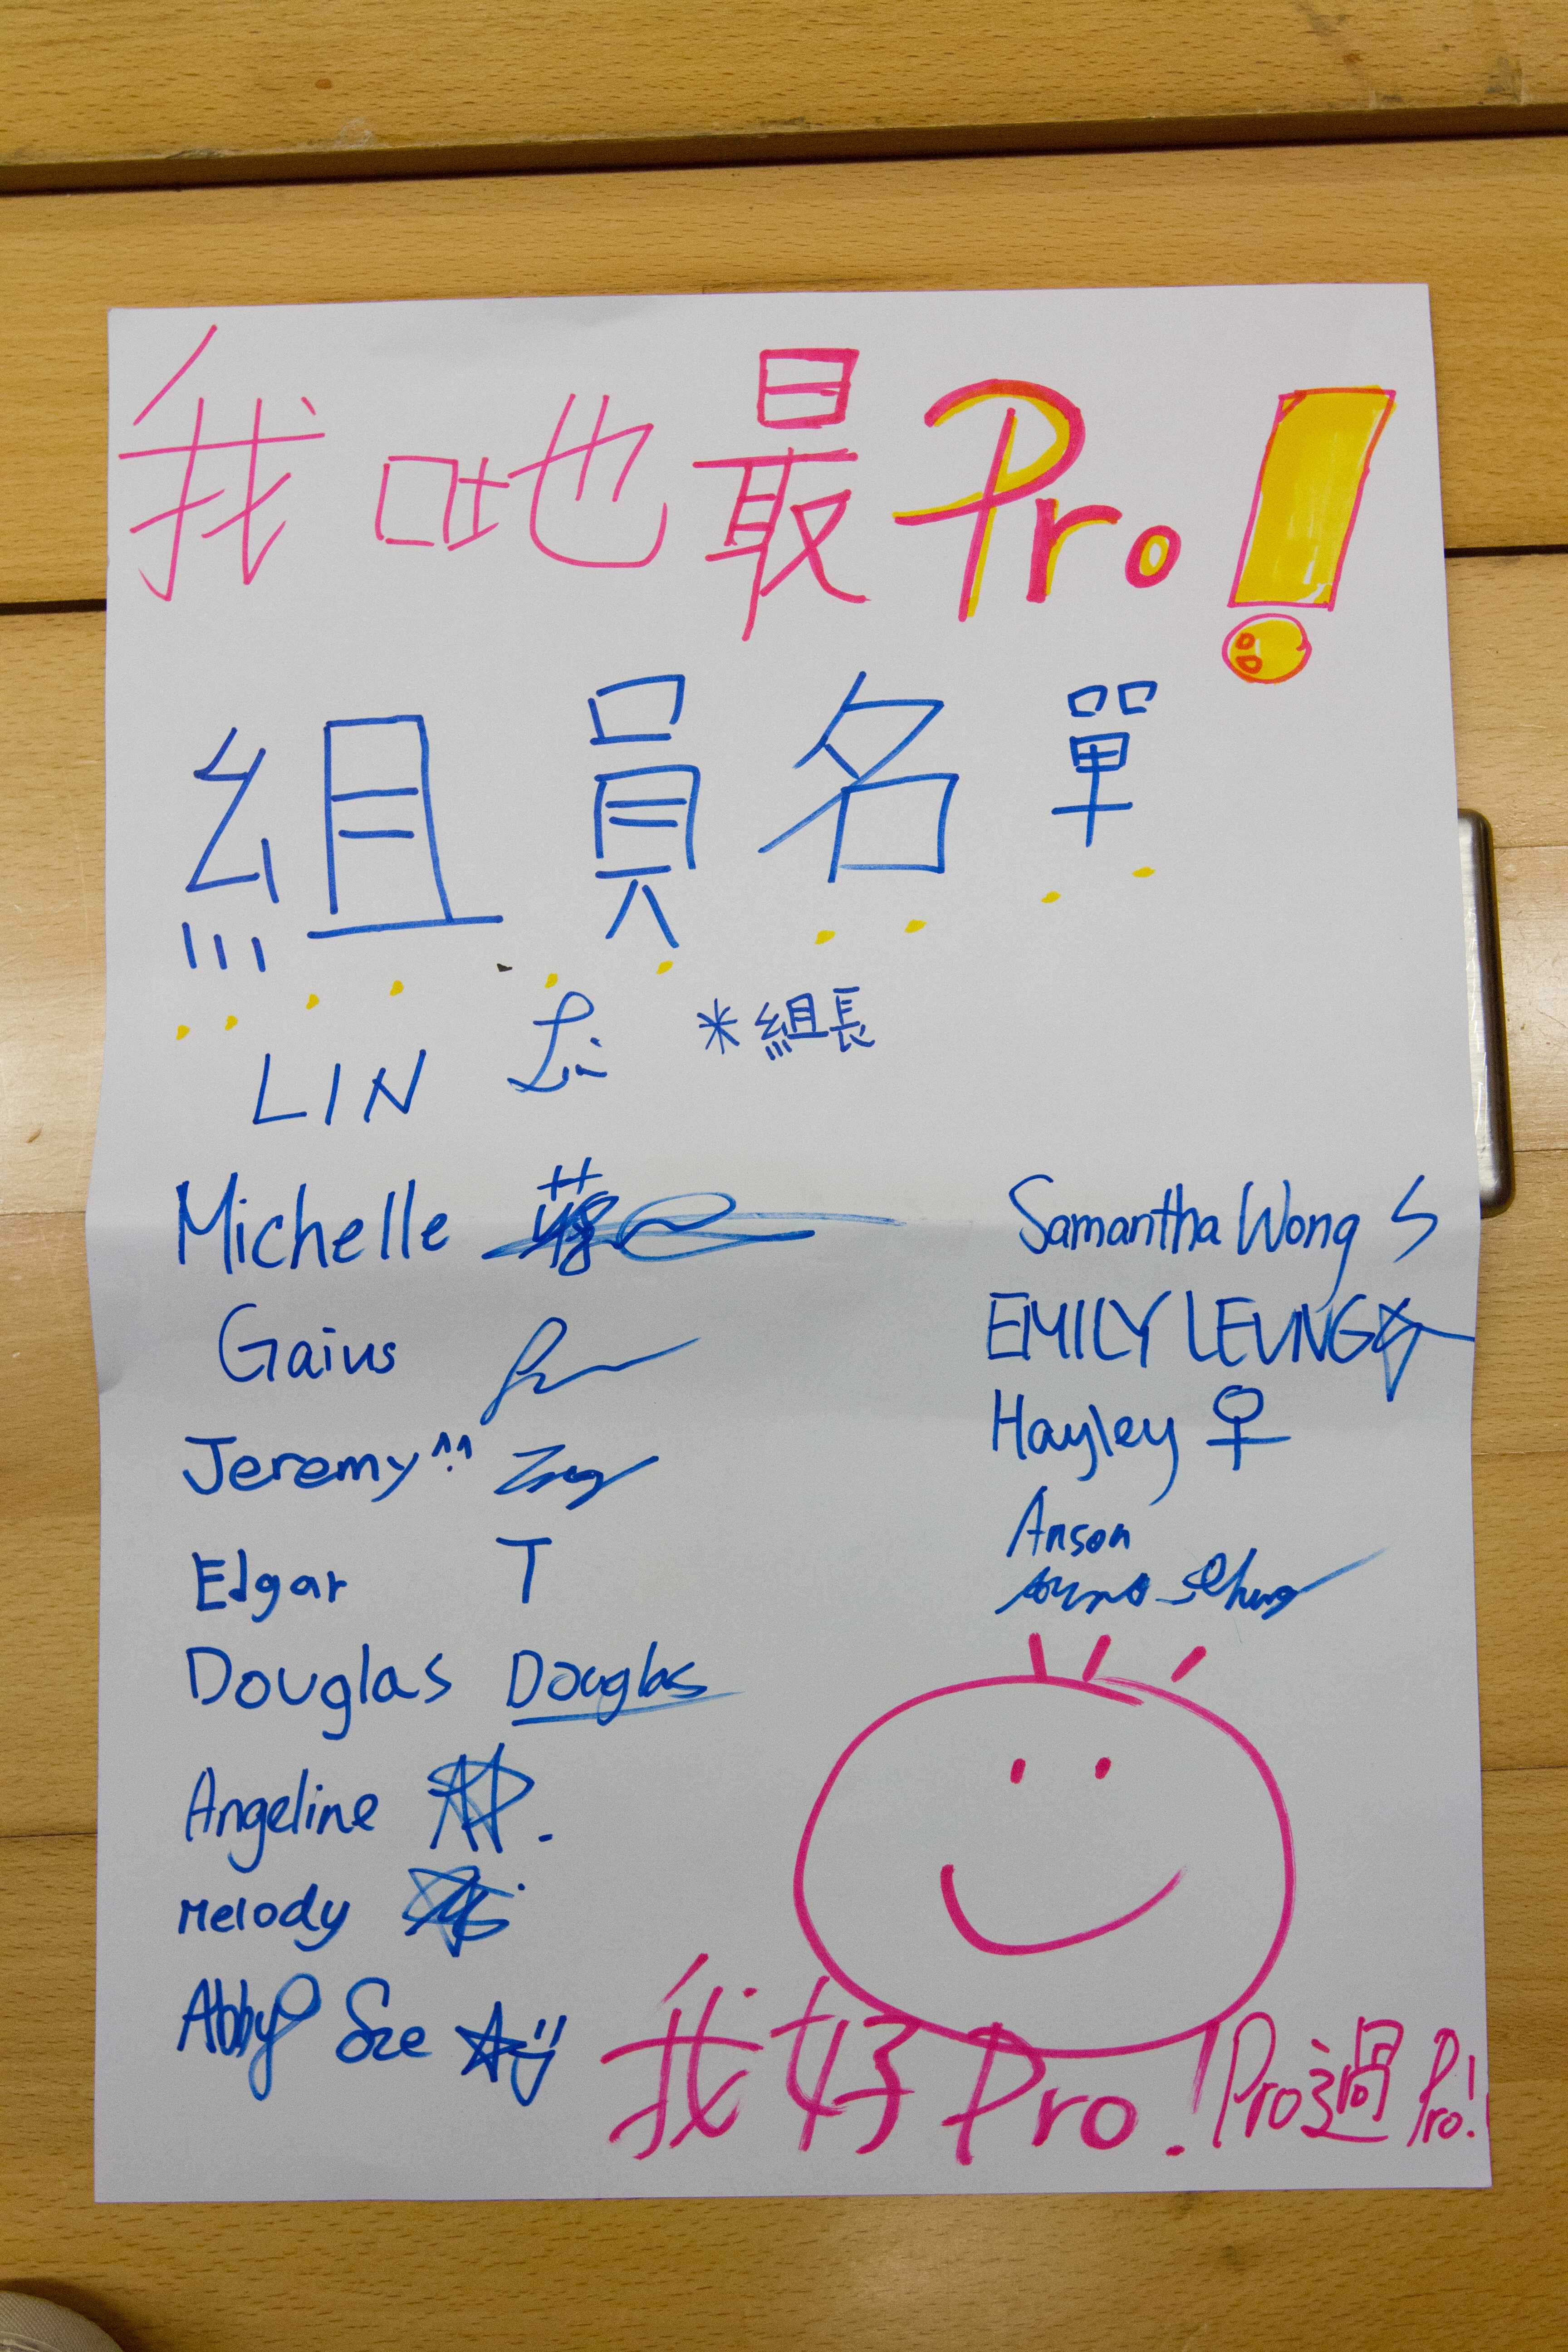 我哋最Pro!
組員名單
LIN Lin *組長
Michelle
Gaius
Jeremy^^
Edgar T
Douglas Douglas
Angeline
Melody
Abby Sze
Samantha Wong S
EMILY LEUNG
Hayley
Anson
我好Pro! Pro過Pro!